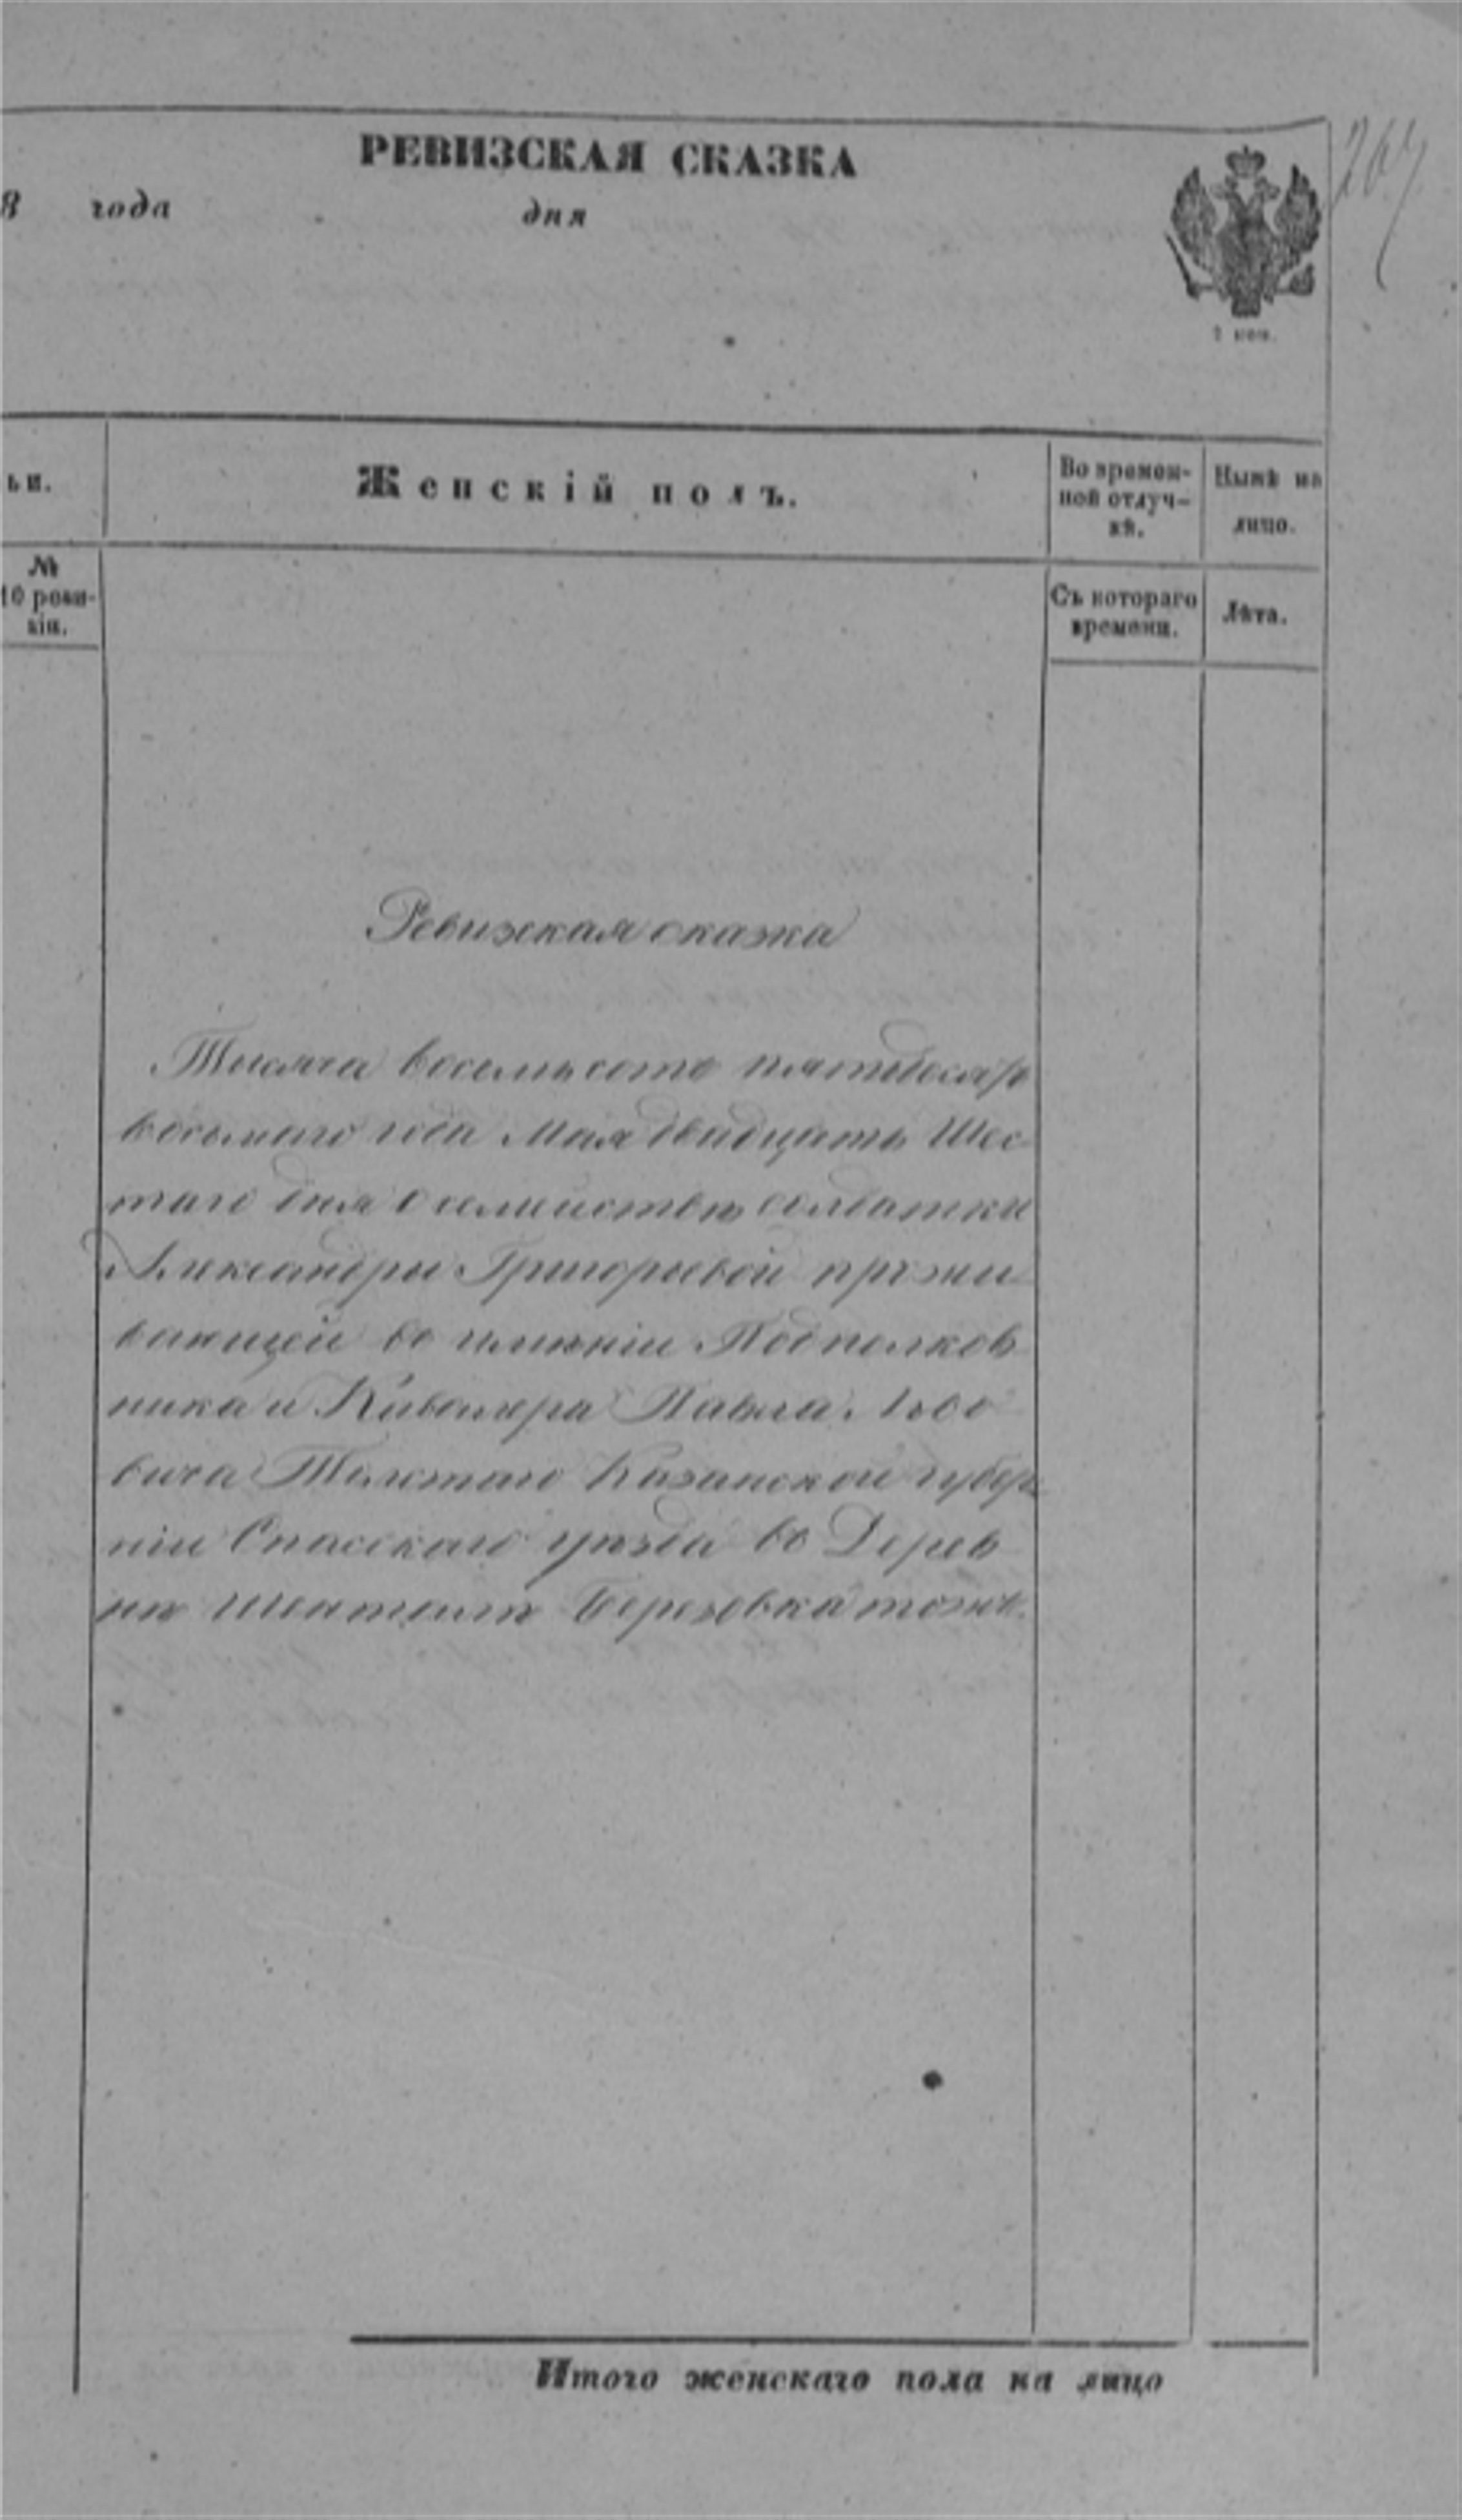 РЕВИЗСКАЯ СКАЗКА
8 года дня
2 коп.
ьи. Женскій полъ. Во времен- Нынѣ на
ной отлуч- лицо.
кѣ.
№ Съ котораго Лѣта.
10 реви- времени.
зіи.
Ревизская сказка
Тысяча восемьсотъ пятьдесятъ
восьмаго года Мая двадцать Шес
таго дня о семействѣ солдатки
Александры Григорьевой прожи
вающей въ имѣніи Подполков
ника и Кавалера Павла Льво
вича Толстаго Казанской губер
ніи Спасскаго уѣзда въ Дерев
нѣ Шентала Березовка тожъ.
Итого женскаго пола на лицо